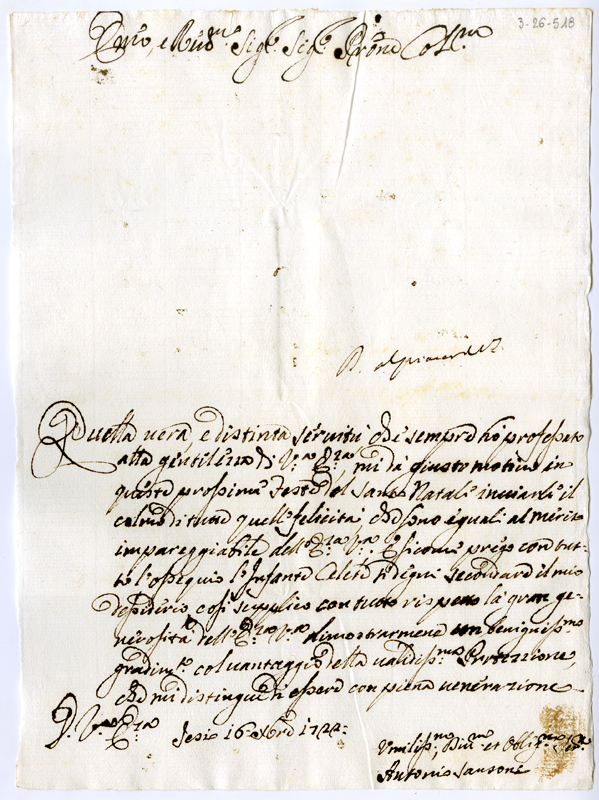 3-26-518
Emo, e Rmo Sigr. Sigr. Prone Colmo
Quella vera, e distinta servitù che sempre hò professato
alla gentilezza di Va. Eza. mi dà giusto motivo in
queste prossime Feste del Santo Natale inviarli il
colmo di tutte quelle felicità, che sono eguali al merito
impareggiabile dell' Eza. Va. E siccome prego con tut-
to l'ossequio l'Infante Celeste si degni secondare il mio
desiderio così supplico con tutto rispetto la gran ge-
nerosità dell' Eza. Va. dimostrarmene un benigniss.mo
gradim.to col vantaggio della validiss.ma Protezzione,
che mi distingue di essere con piena venerazione
D. Va. Eza. Jesi 16 Xbre 1722.
Umiliss.mo Div.mo et Obblig.mo
Antonio Sansone